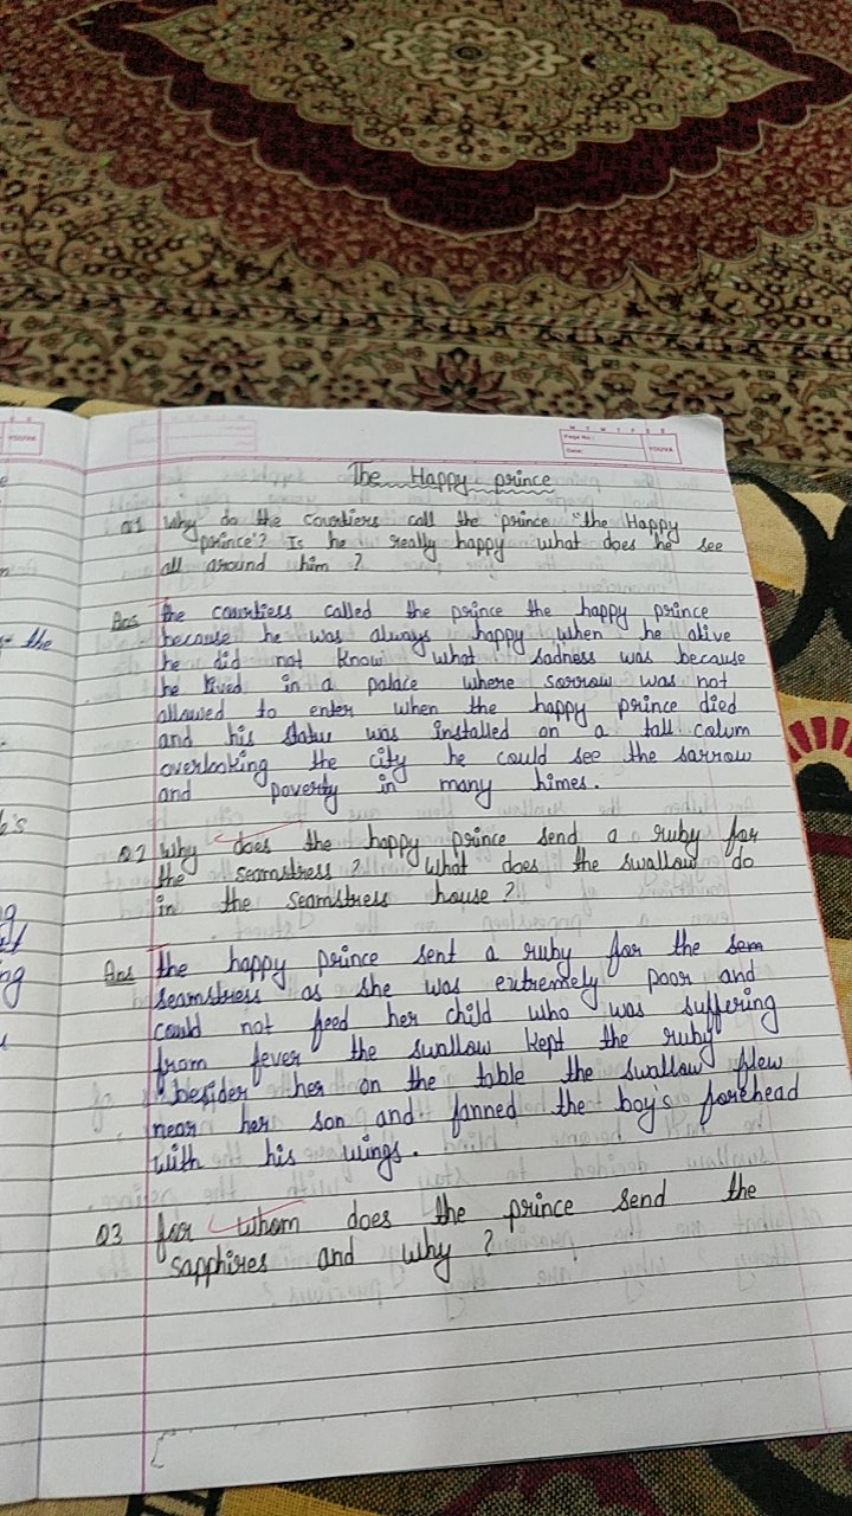 Page No.:
Date:
YOUVA
YOUVA
The Happy prince
Q1 Why do the courtiers call the prince "the Happy
prince"? Is he really happy what does he see
all around him ?
Ans the courtiess called the prince the happy prince
because he was always happy when he alive
he did not know what sadness was because
he lived in a palace where sorrow was not
allowed to enter when the happy prince died
and his statue was installed on a tall colum
overlooking the city he could see the sarrow
and poverty in many himes.
Q2 Why does the happy prince send a ruby for
the seamstress ? What does the swallow do
in the seamstress house ?
Ans the happy prince sent a ruby for the sem
seamstress as she was extremely poor and
could not feed her child who was suffering
from fever the swallow kept the ruby
besider her on the table the swallow flew
near her son and fanned the boy's forehead
with his wings.
Q3 for whom does the prince send the
sapphires and why ?
the